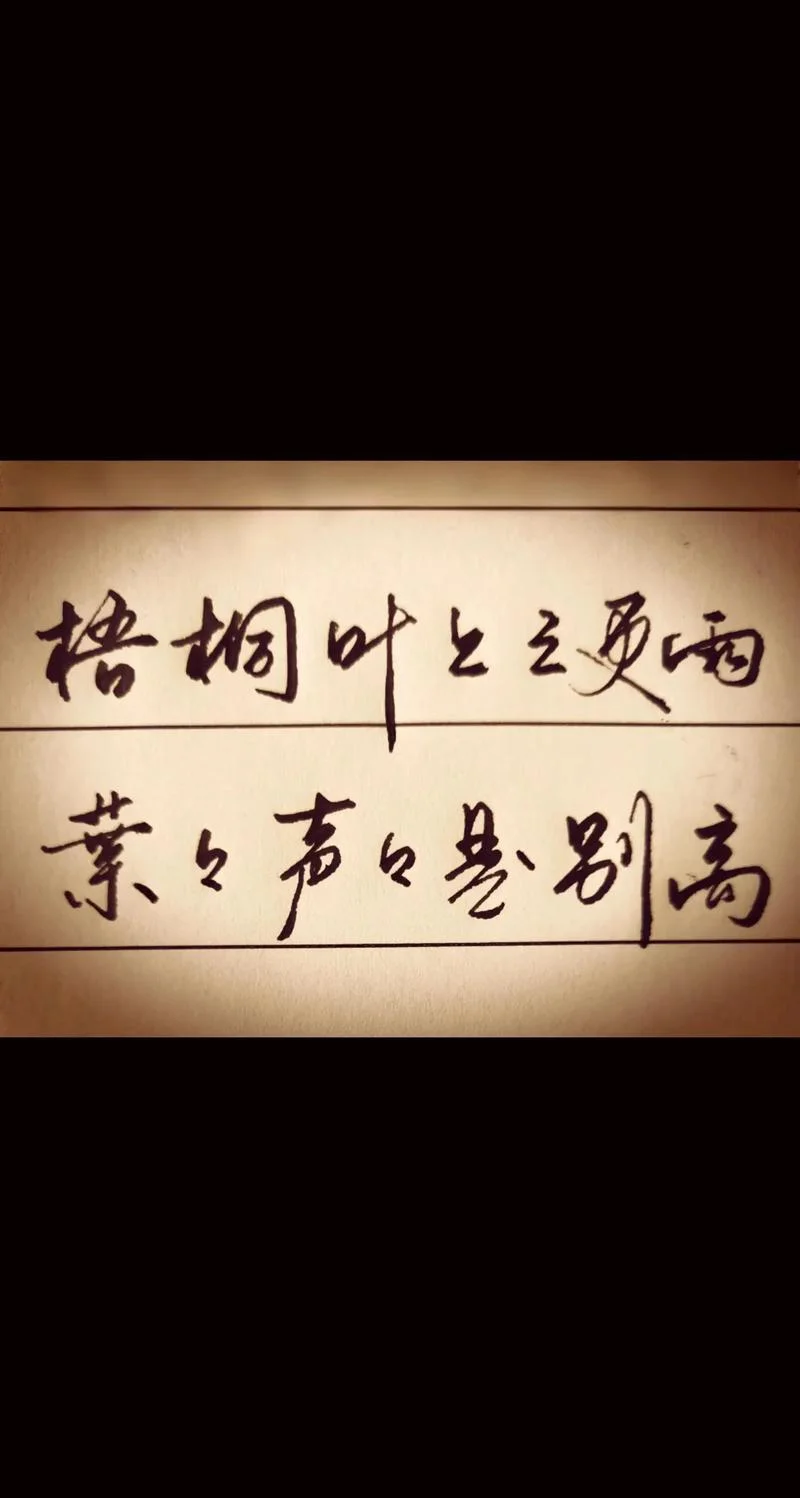 梧桐叶上三更雨
葉々声々是别离